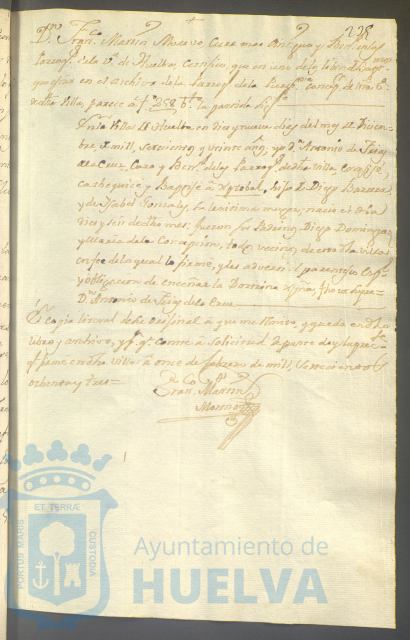 238
Dn. Fran.co Martin Moreno, Cura mas Antiguo y Ben.do en las
Parroq.s de la V.a de Huelva, Certifico, que en uno de los libros de Bauptismos
que estan en el archivo de la Parroq.l de la Puris.ma Concep.n de ntra S.ra
de dha Villa, parece a f.o 258 b.to la partida sig.te
En la Villa de Huelva en diez y nueve dias del mes de Diciem-
bre, de mill, setecientos y veinte años, yo Dn. Antonio de
de la Cueva, Cura y Ben.do de las Parroq.s de dha villa,
Cathequize y Baptize a Xptobal, hijo de Diego Barrera
y de Isabel Gonzales, su lexitima muger, nacio el dia
diez y seis de dho mes: fueron sus Padrinos Diego Dominguez
y Maria de la Corapcion, todos vecinos de esta dha villa
en fee de lo qual lo firmé, y les adverti el parentesco
y obligacion de enseñar la Doctrina Xptna, fho ut supra =
Dn. Antonio de de la Cueva
Es copia literal de su original a que me remito, y queda en dho
libro y archivo, y p.a q.e conste a solicitud de parte doy la pres.te
q.e firmé en dha villa a once de febrero de mill, setecientos
ochenta y tres =
Fran.co Martin
Moreno
PORTUS MARIS
ET TERRÆ
CUSTODIA
Ayuntamiento de
HUELVA